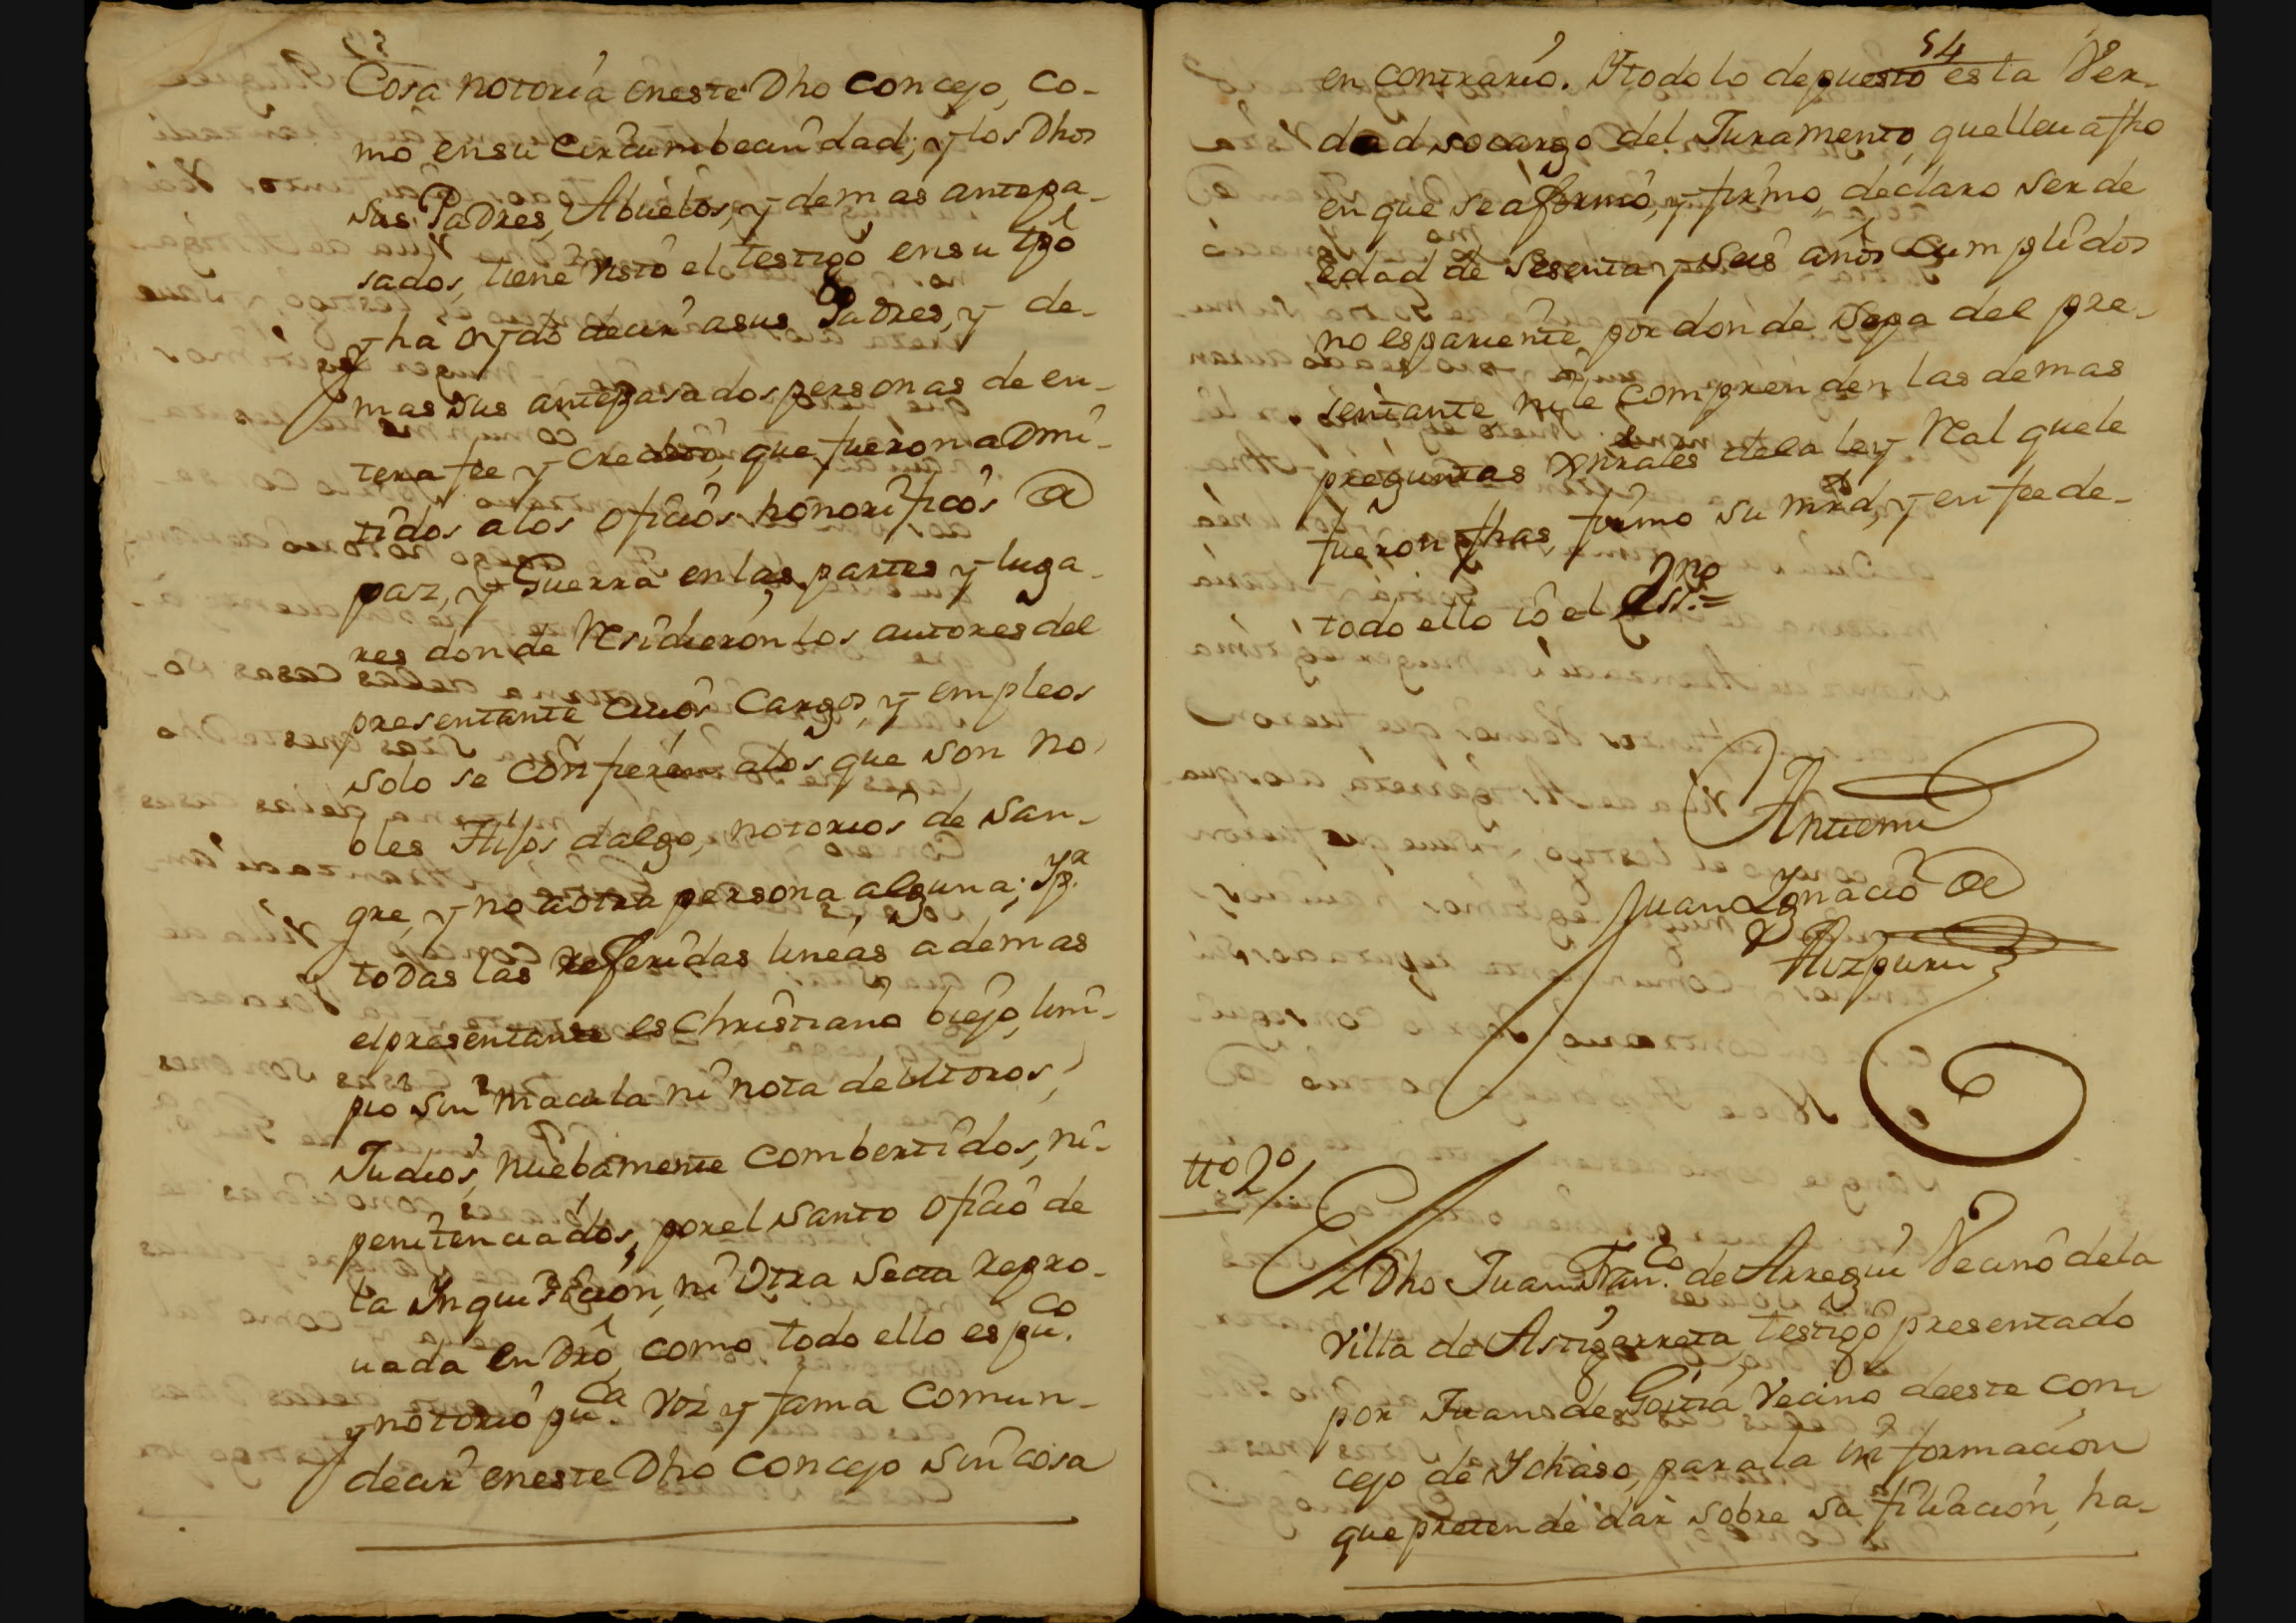 Cosa notoria eneste Dho concejo, co-
mo ensu circumbecindad; y los Dhos
sus Padres, Abuelos, y demas antepa-
sados, tiene visto el testigo ensu tpo
y ha oydo decir asus Padres, y de-
mas sus antepasados personas de en-
tera fee y credito, que fueron aDmi-
tidos alos oficios honorificos de
paz, y Guerra enlas partes y luga-
res donde Residieron los autores del
presentante cuios Cargos, y empleos
solo se confieren alos que son no
bles Hijos dalgo, notorios de san-
gre, y no aotra persona alguna; Yp.r
todas las referidas lineas ademas
elpresentante es Christiano biejo, lim-
pio sin macula ni nota de Moros,
Judios, nuebamente combertidos, ni
penitenciados, porel santo oficio de
la Inquisicion, ni Otra Secta repro-
uada en Dro, como todo ello es pu.co
y notorio pu.ca voz y fama comun
decir eneste Dho concejo sin cosa
54
en contrario. Ytodo lo depuesto es la Ver-
dad socargo del Juramento, quelleua fho
en que seafirmó, y firmo, declaro ser de
edad de sesenta y seis años cumplidos
no espariente por donde sepa del pre-
sentante ni le comprenden las demas
preguntas Gnrales dela ley Real quele
fueron fhas, firmo su mrd, y en fee de-
todo ello io el Ess.no=
Antemi
Juan Ygnacio de
Aizpuru
tt.o 2.o/.
El Dho Juan Fran.co de Arregui Vecino dela
Villa de Astigarreta, testigo presentado
por Juan de Goitia Vecino deeste con
cejo de Ychaso, parala informacion
que pretende dar sobre su filiacion, ha-